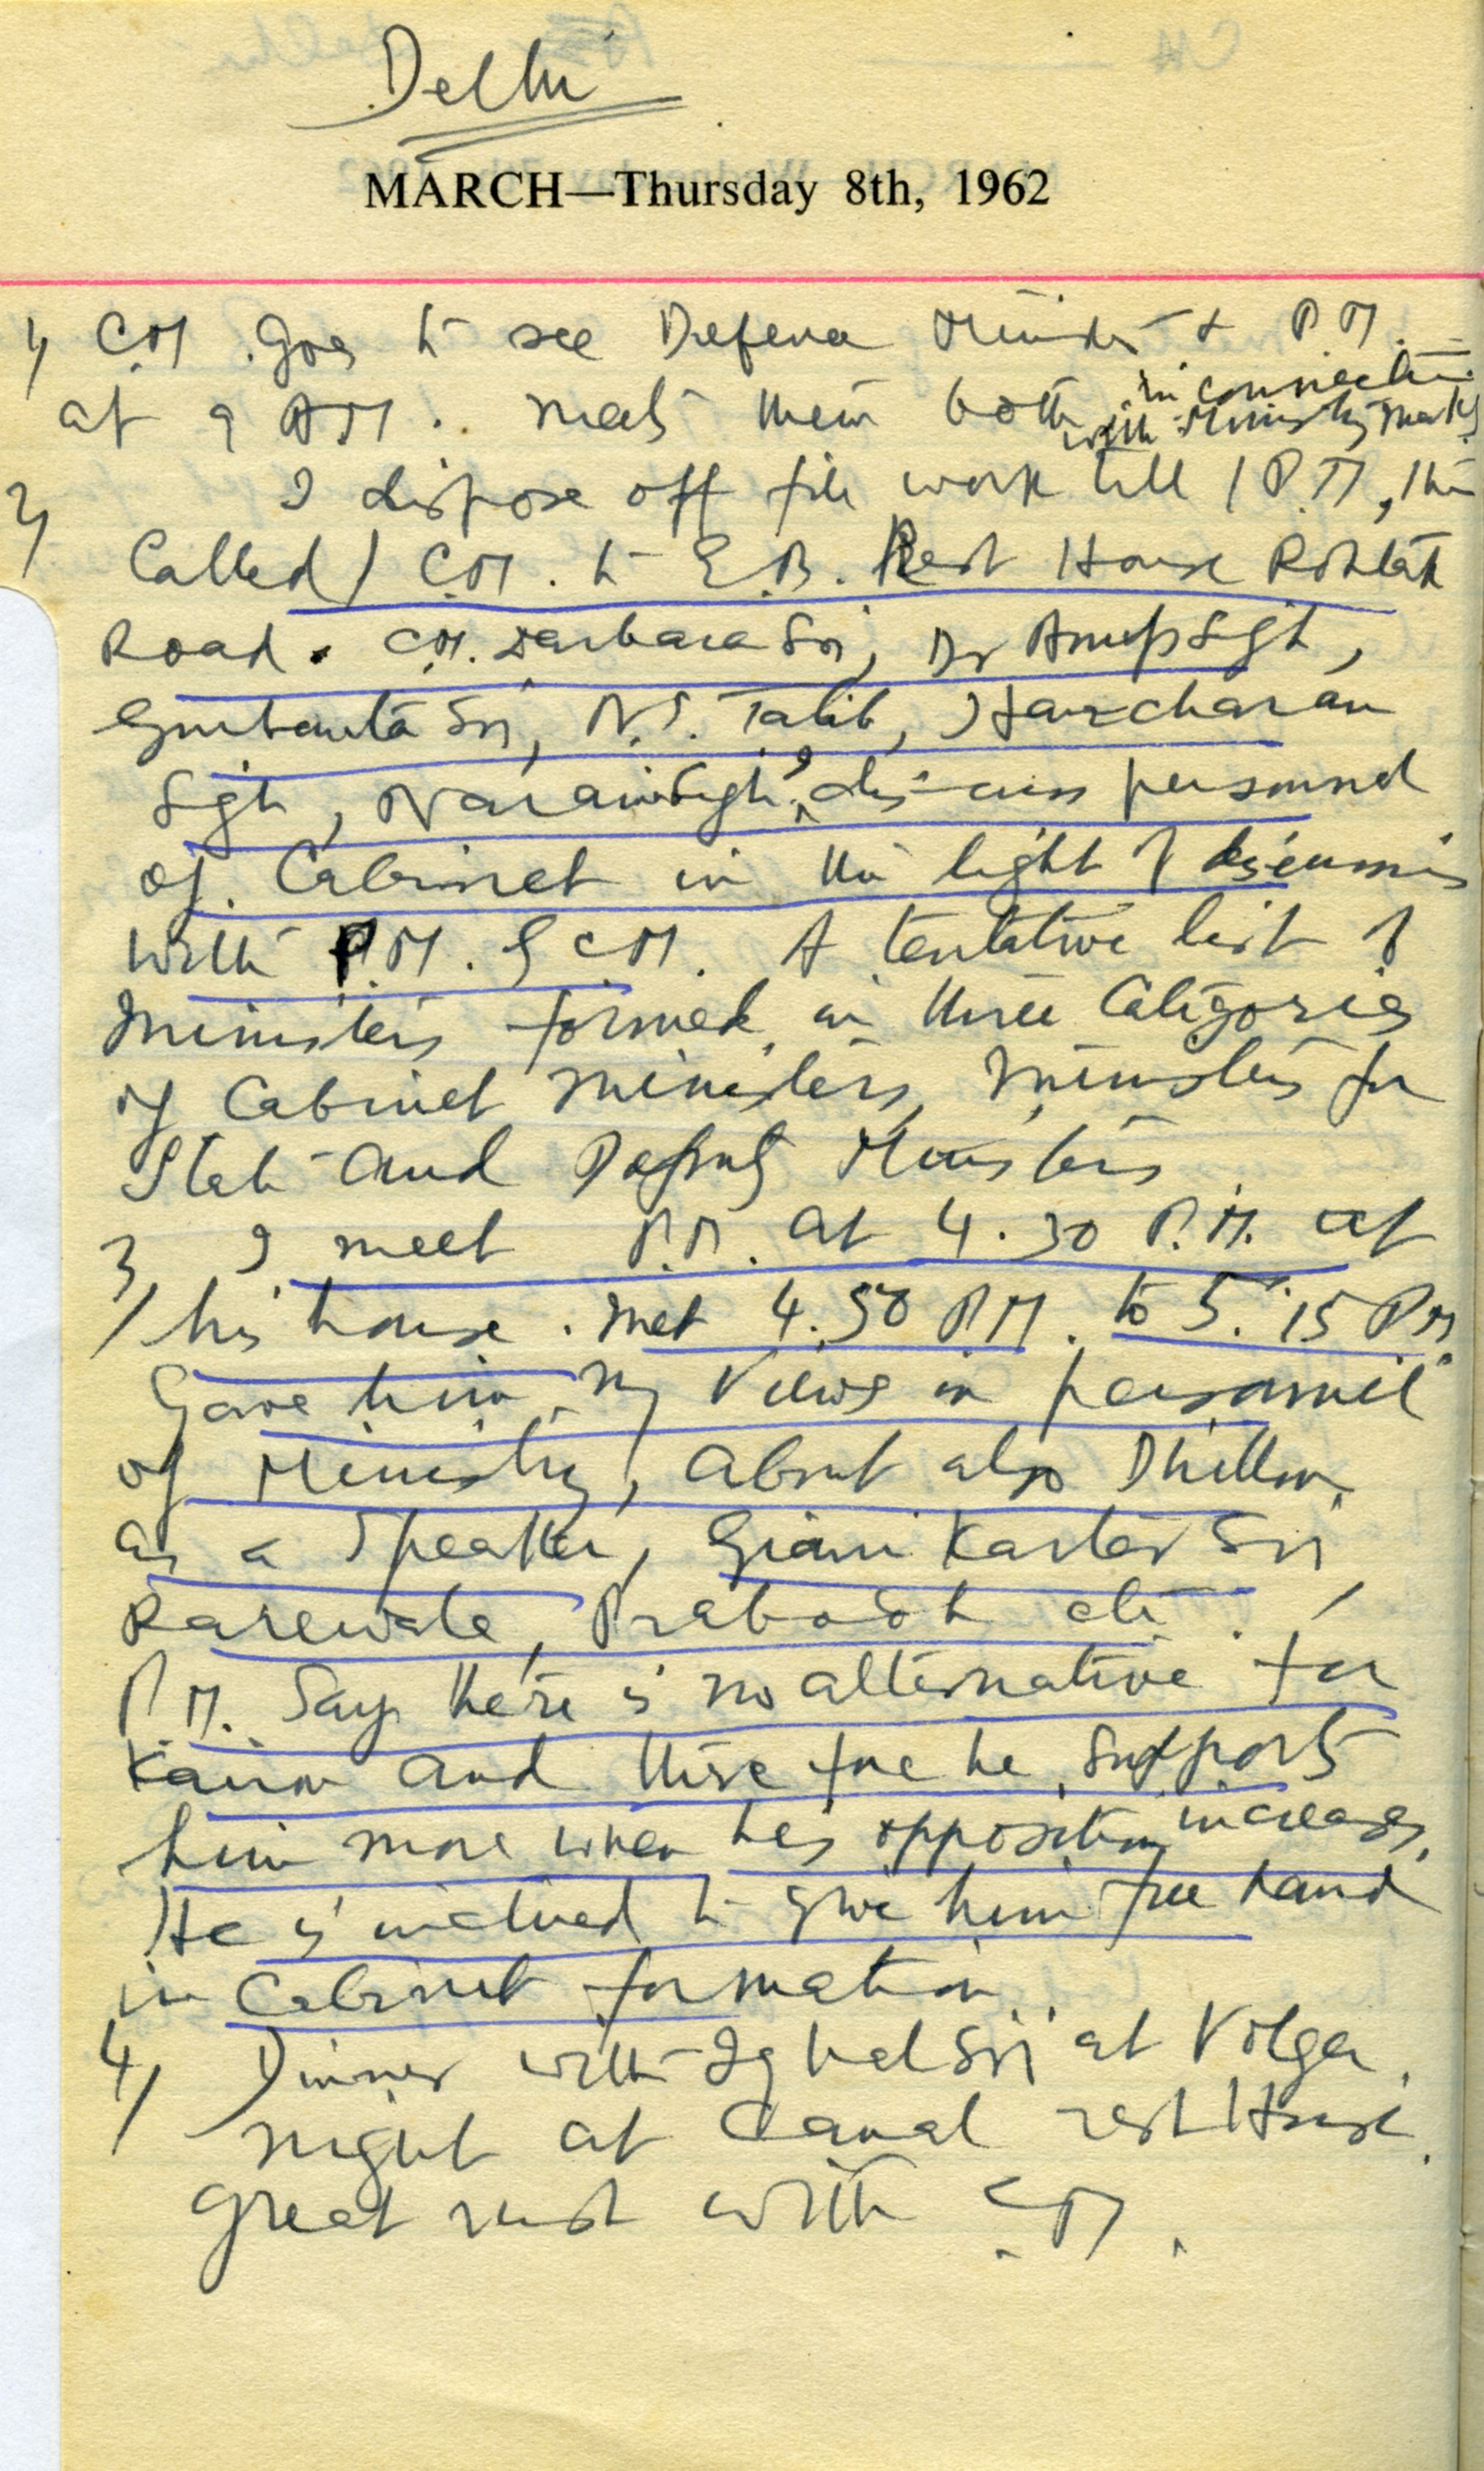 Delhi
MARCH—Thursday 8th, 1962
1) C.M. goes to see Defence Minister & P.M.
at 9 AM. meets them both in connection
with Ministry making
2) I dispose off file work till 1 P.M.,
Called C.M. to E.B. Rest House Rohtak
Road. C.M. Darbara Sn, Dr Anup Sgh,
Gurbanta Sn, N.S. Talib, Harcharan
Sgh, Narain Sigh, discuss personnel
of Cabinet in the light of discussions
with P.M. & CM. A tentative list of
Ministers formed in three Categories
of Cabinet Ministers, Ministers for
State and Deputy Ministers
3) I meet P.M. at 4.30 P.M. at
his house. Met 4.50 P.M. to 5.15 PM
Gave him my views on personnel
of Ministry, about also Dhillon
as a Speaker, Giani Kartar Sn
Rarewala, Prabodh etc.
P.M. Says there is no alternative for
Kairon and therefore he supports
him more when his opposition increases.
He is inclined to give him free hand
in Cabinet formation.
4) Dinner with Iqbal Sn at Volga.
night at Canal rest House.
Great rush with C.M.